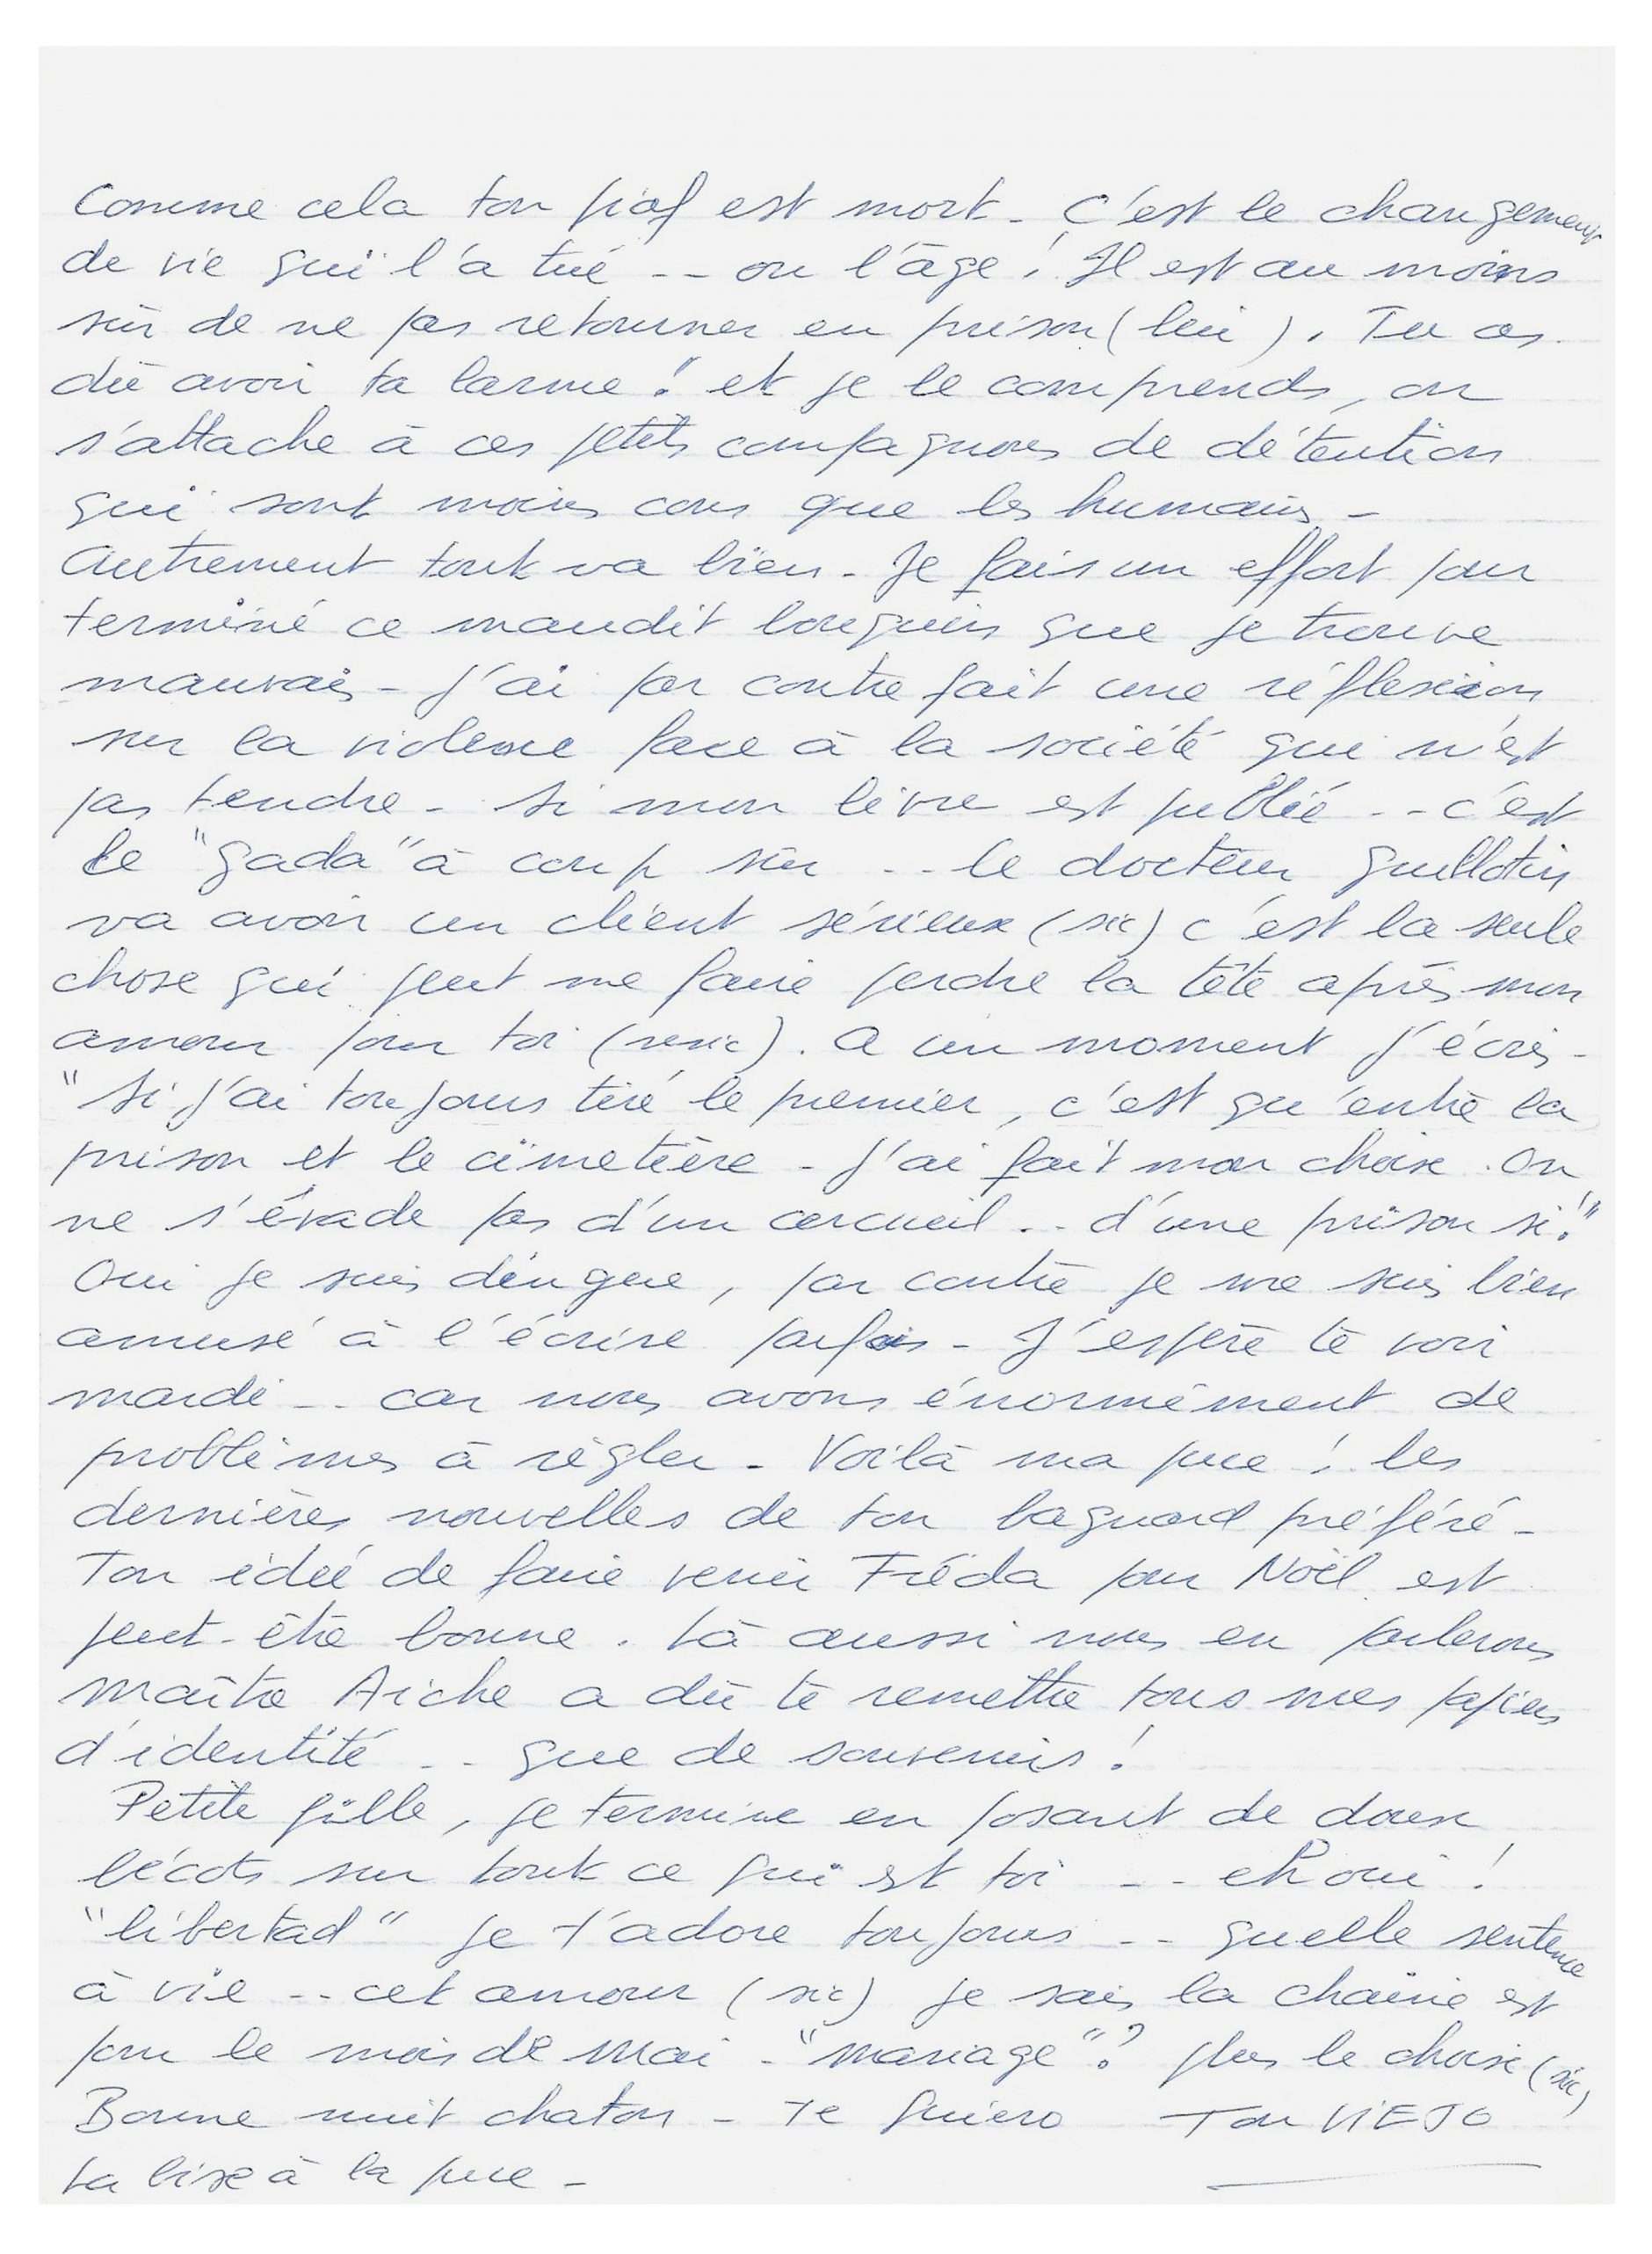 Comme cela ton piaf est mort - C'est le changement
de vie qui l'a tué -- ou l'âge ! Il est au moins
sûr de ne pas retourner en prison (lui). Tu as
dû avoir ta larme ! et je le comprends, on
s'attache à ces petits compagnons de détention
qui sont moins cons que les humains -
Autrement tout va bien - Je fais un effort pour
terminé ce maudit bouquin que je trouve
mauvais - J'ai par contre fait une réflexion
sur la violence face à la société qui n'est
pas tendre - Si mon livre est publié -- c'est
le "gada" à coup sûr -- le docteur Guillotin
va avoir un client sérieux (sic) c'est la seule
chose qui peut me faire perdre la tête après mon
amour pour toi (resic). A un moment j'écris -
"Si j'ai toujours tiré le premier, c'est qu'entre la
prison et le cimetière - J'ai fait mon choix. On
ne s'évade pas d'un cercueil .. d'une prison si !"
Oui je suis dingue, par contre je me suis bien
amusé à l'écrire parfois - J'espère te voir
mardi -- car nous avons énormément de
problèmes à règler - Voilà ma puce ! les
dernières nouvelles de ton bagnard préféré -
Ton idée de faire venir Fréda pour Noël est
peut-être bonne. Là aussi nous en parlerons
Maître Aiche a dû te remettre tous mes papiers
d'identité -- que de souvenirs !
Petite fille, je termine en posant de doux
bécots sur tout ce qui est toi -- eh oui !
"libertad" je t'adore toujours -- quelle sentence
à vie -- cet amour (sic) je sais la chaîne est
pour le mois de Mai - "mariage" ? plus le choix (sic)
Bonne nuit chaton - Te quiero Ton VIEJO
La bise à la puce -